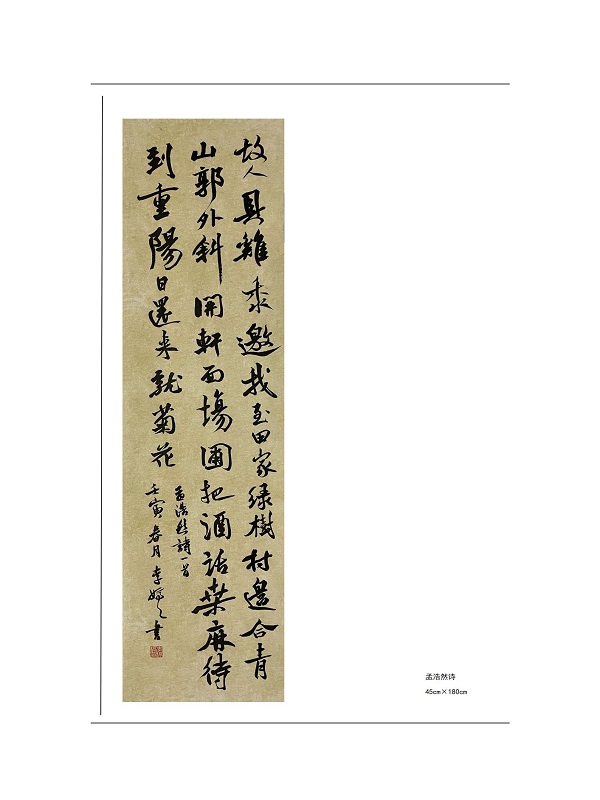 故人具雞黍邀我至田家绿樹村邊合青
山郭外斜開軒面場圃把酒話桑麻待
到重陽日還来就菊花
孟浩然詩一首
壬寅春月李婷之書
孟浩然诗
45cm×180cm